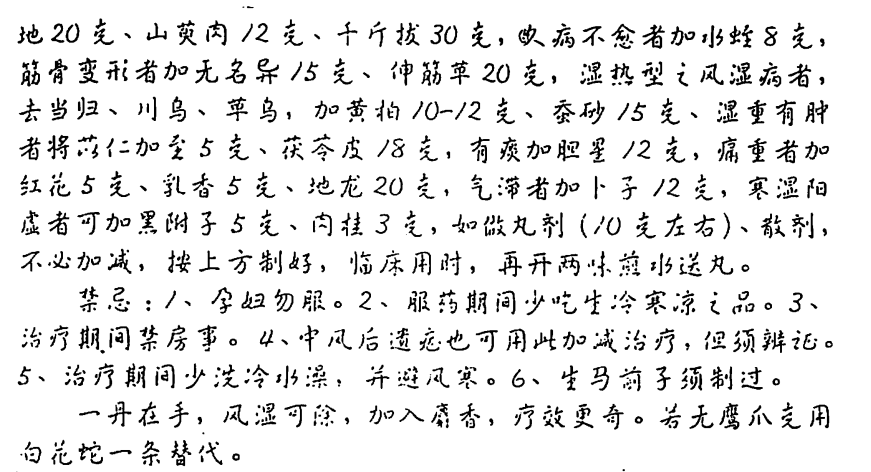 地20克、山萸肉12克、千斤拔30克，久病不愈者加水蛭8克，
筋骨变形者加无名异15克、伸筋草20克，湿热型之风湿病者，
去当归、川乌、草乌，加黄柏10-12克、蚕砂15克、湿重有肿
者将苡仁加至5克、茯苓皮18克，有痰加胆星12克，痛重者加
红花5克、乳香5克、地龙20克，气滞者加卜子12克，寒湿阳
虚者可加黑附子5克、肉桂3克，如做丸剂（10克左右）、散剂，
不必加减，按上方制好，临床用时，再开两味煎水送丸。
禁忌：1、孕妇勿服。2、服药期间少吃生冷寒凉之品。3、
治疗期间禁房事。4、中风后遗症也可用此加减治疗，但须辨证。
5、治疗期间少洗冷水澡，并避风寒。6、生马前子须制过。
一丹在手，风湿可除，加入麝香，疗效更奇。若无鹰爪克用
白花蛇一条替代。